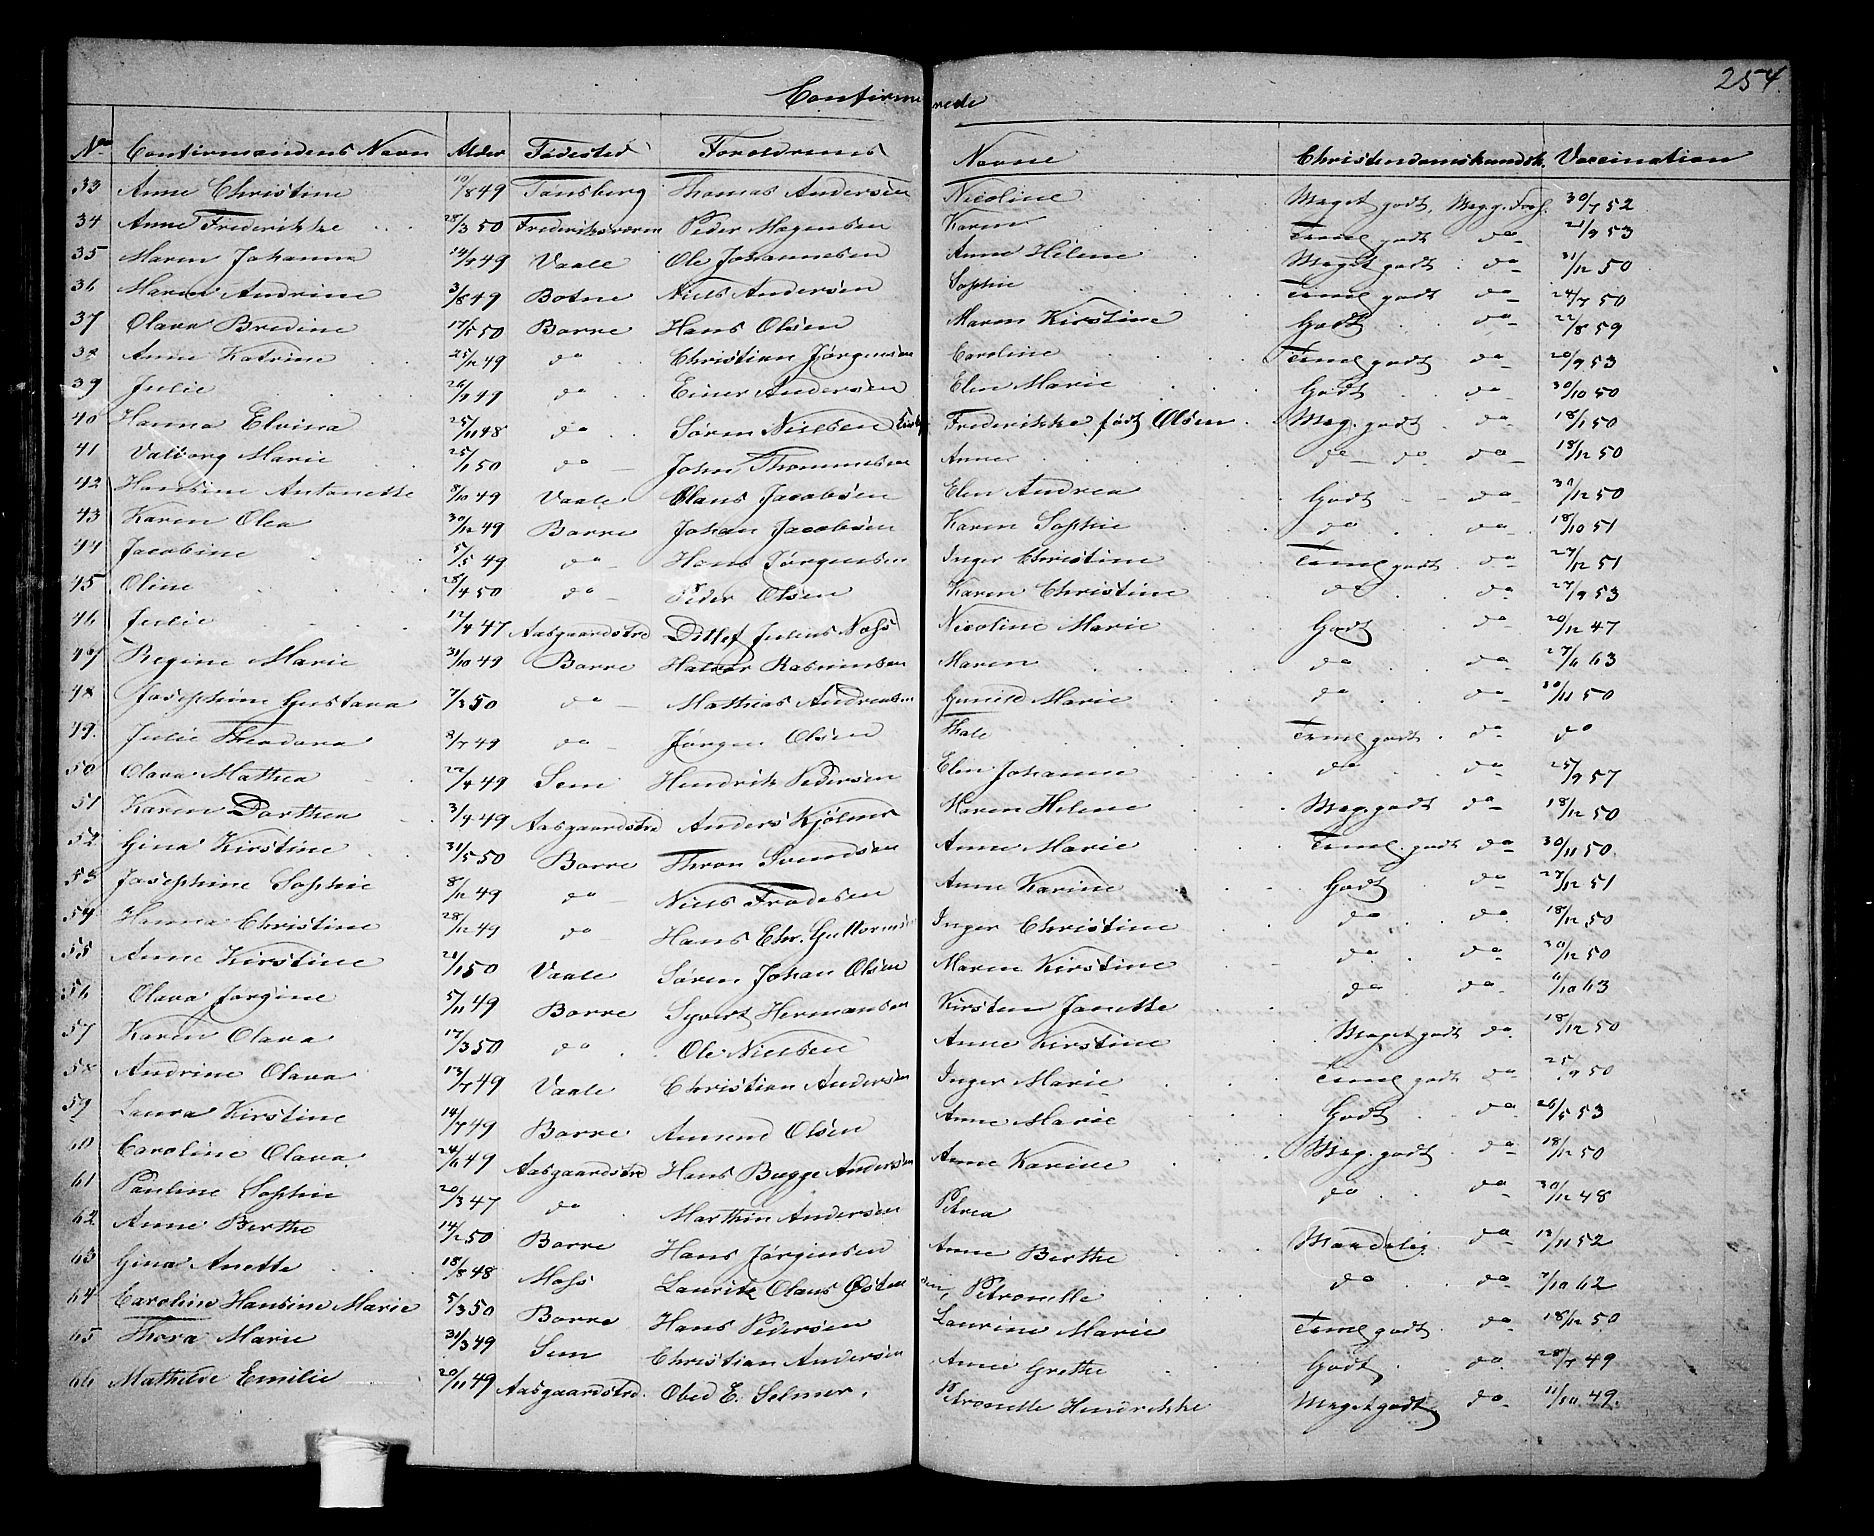 254.
Confirmerede
No Confirmandens Navn Alder Fødested Forældrenes Navne Christendomskundsk. Vaccination
33 Anne Christine 10/8 49 Tønsberg Thomas Andersen Nicoline Meget godt, Meg. g. Forh. 30/7 52
34 Anne Frederikke 28/3 50 Frederiksværn Peder Mogensen Karen Teml. godt do 21/9 53
35 Maren Johanna 49 Vaale Ole Johannesen Anne Helene Meget godt do 31/12 50
36 Maren Andrine 3/8 49 Botne Niels Andersen Sophie Teml godt do 24/7 50
37 Olava Bredine 17/5 50 Borre Hans Olsen Maren Kirstine Godt do 22/8 59
38 Anne Katrine 25/12 49 do Christian Jørgensen Caroline Teml godt do 20/9 53
39 Julie 49 do Einer Andersen Elen Marie Godt do 30/10 50
40 Hanna Elvina 25/11 48 do Søren Nielsen Frederikke født Olsen Meg. godt do 18/1 50
41 Valborg Marie 25/1 50 do John Thommesen Anne do do do 18/12 50
42 Hansine Antonette 8/10 49 Vaale Claus Jacobsen Elen Andrea Godt do 31/12 50
43 Karen Olea 30/12 49 Borre Johan Jacobsen Karen Sophie do do 18/10 51
44 Jacobine 5/5 49 do Hans Jørgensen Inger Christine Teml godt do 27/12 51
45 Oline 28/4 50 do Peder Olsen Karen Christine do do 27/9 53
46 Julie 12/4 47 Aasgaardstrd Ditlef Julius Moss Nicoline Marie Godt do 20/12 47
47 Regine Marie 31/10 49 Borre Halvor Rasmussen Maren do do 63
48 Josephine Gustava 7/3 50 do Mathias Andreasen Gunild Marie do do 30/11 50
49. Julie Theodora 8/7 49 do Jørgen Olsen Thale Teml godt do do
50 Olava Mathea 22/4 49 Sem Hendrik Pedersen Elen Johanne do do 25/9 57
51 Karen Dorthea 3/4 49 Aasgaardstrd Anders Kjølner Maren Helene Meg. godt do 18/12 50
52 Gina Kirstine 31/5 50 Borre Thron Svendsen Anne Marie Teml. godt do 30/11 50.
53 Josephine Sophie 8/12 49 do Niels Frodesen Anne Karine Godt do 27/12 51
54 Hanna Christine 28/12 49 do Hans Chr. Guttormsen Inger Christine do do 18/12 50
55 Anne Kirstine 50 Vaale Søren Johan Olsen Maren Kirstine do do 30/12 50
56 Olava Jørgine 5/11 49 Borre Syvert Hermansen Kirsten Janette do do 63
57 Karen Olava 17/3 50 do Ole Nielsen Anne Kirstine Meget godt do 18/12 50
58 Andrine Olava 13/7 49 Vaale Christian Andersen Inger Marie Teml godt do 25/9 50
59 Laura Kirstine 14/7 49 Borre Amund Olsen Anne Marie Godt do 26/5 53
60 Caroline Olava 24/11 49 Aasgaardstrd Hans Bugge Andersen Anne Karine Meg. godt do 18/12 50
61 Pauline Sophie 20/3 47 do Marthin Andersen Petrea do do 30/12 48
62 Anne Berthe 14/2 50 Borre Hans Jørgensen Anne Berthe Maadelig do 13/11 52
63 Gina Anette 18/8 48 Moss Lauritz Olaus Østensen, Petronelle do do 7/10 62
64 Caroline Hansine Marie 5/3 50 Borre Hans Pedersen Laurine Marie Teml godt do 18/12 50
65 Thora Marie 31/3 49 Sem Christian Andersen Anne Grethe Godt do 28/7 49
66 Mathilde Emilie 20/11 49 Aasgaardstrd. Obed E. Selmer. Petronelle Hendrikke Meget godt do 11/10. 49.